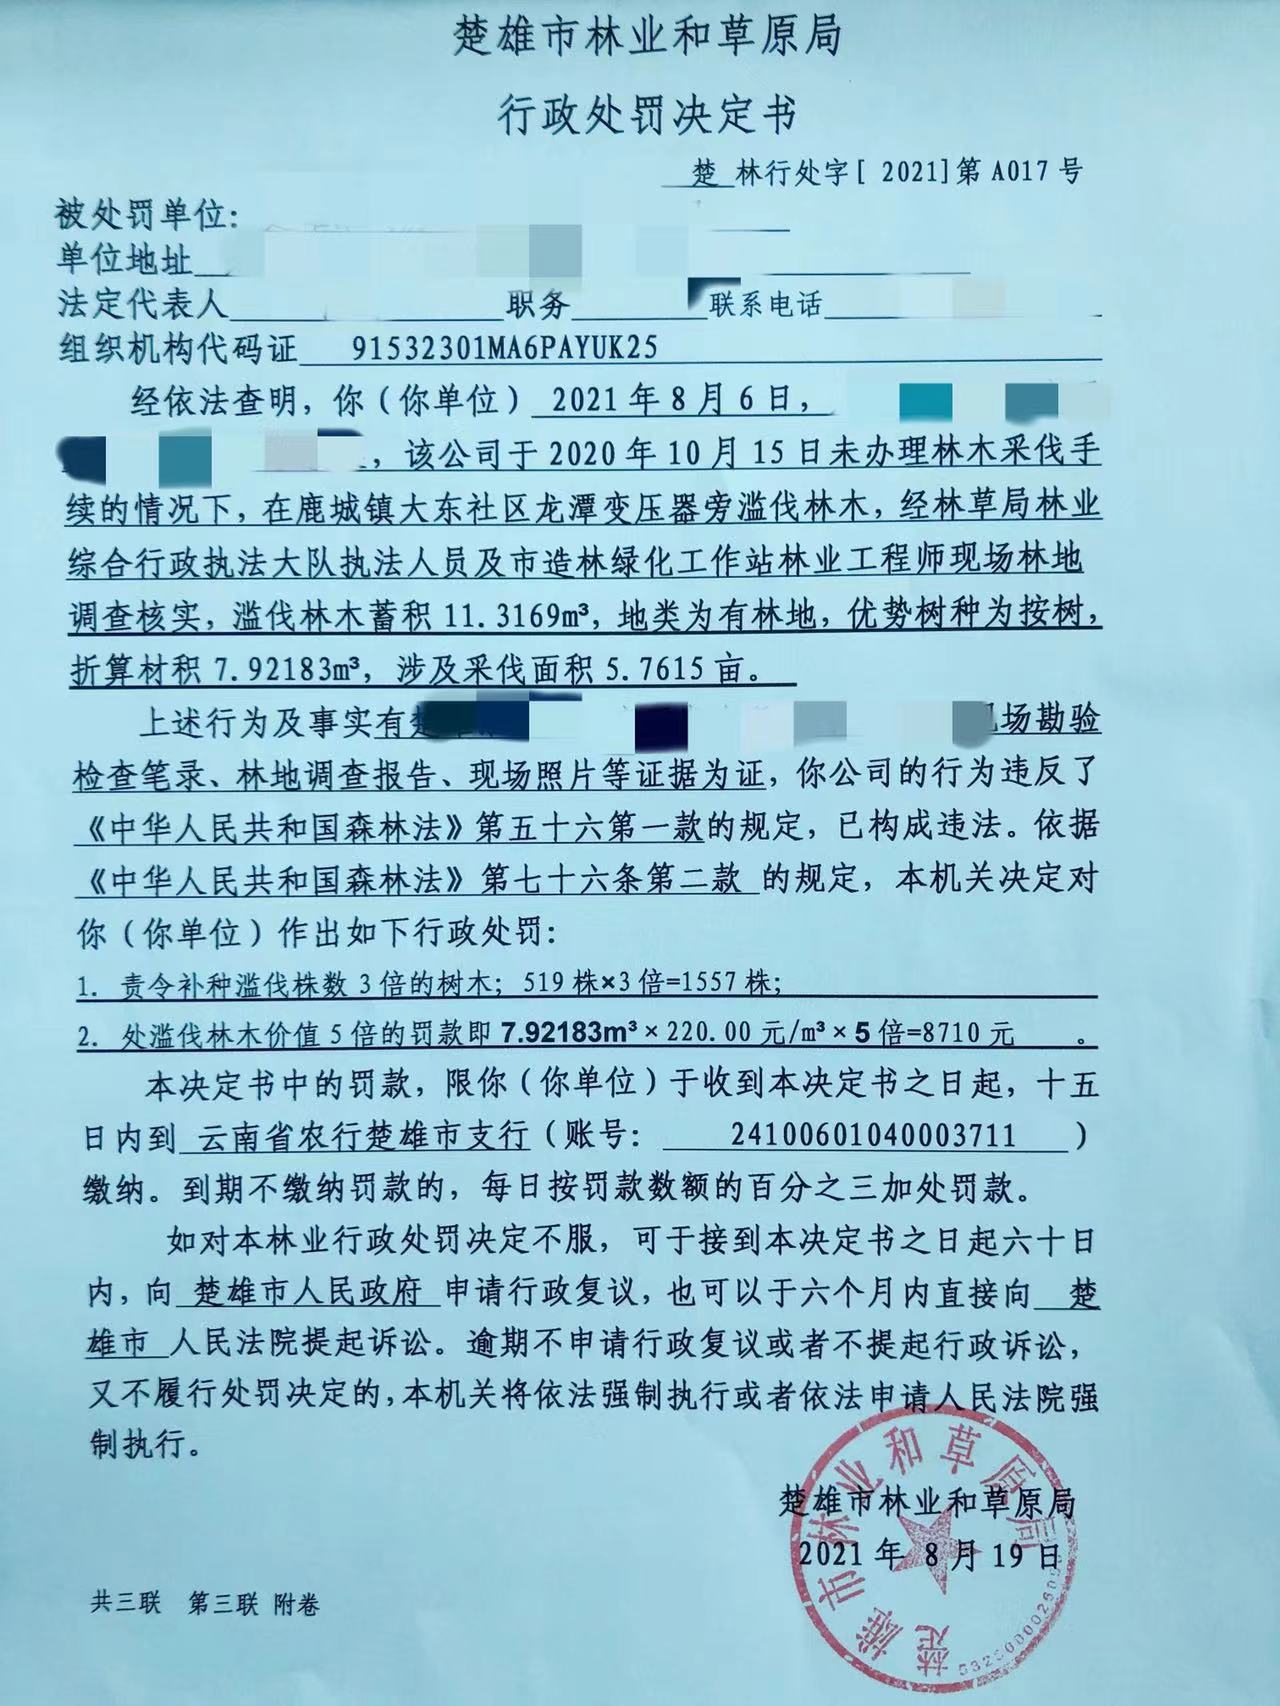 楚雄市林业和草原局
行政处罚决定书
楚 林行处字[ 2021]第 A017 号
被处罚单位:
单位地址
法定代表人 职务 联系电话
组织机构代码证 91532301MA6PAYUK25
经依法查明，你（你单位） 2021 年 8 月 6 日，
，该公司于 2020 年 10 月 15 日未办理林木采伐手
续的情况下，在鹿城镇大东社区龙潭变压器旁滥伐林木，经林草局林业
综合行政执法大队执法人员及市造林绿化工作站林业工程师现场林地
调查核实，滥伐林木蓄积 11.3169m³，地类为有林地，优势树种为桉树，
折算材积 7.92183m³，涉及采伐面积 5.7615 亩。
上述行为及事实有 场勘验
检查笔录、林地调查报告、现场照片等证据为证，你公司的行为违反了
《中华人民共和国森林法》第五十六第一款的规定，已构成违法。依据
《中华人民共和国森林法》第七十六条第二款 的规定，本机关决定对
你（你单位）作出如下行政处罚：
1. 责令补种滥伐株数 3 倍的树木；519 株×3 倍=1557 株；
2. 处滥伐林木价值 5 倍的罚款即 7.92183m³ × 220.00 元/m³ × 5 倍=8710 元 。
本决定书中的罚款，限你（你单位）于收到本决定书之日起，十五
日内到 云南省农行楚雄市支行（账号： 24100601040003711 ）
缴纳。到期不缴纳罚款的，每日按罚款数额的百分之三加处罚款。
如对本林业行政处罚决定不服，可于接到本决定书之日起六十日
内，向 楚雄市人民政府 申请行政复议，也可以于六个月内直接向 楚
雄市 人民法院提起诉讼。逾期不申请行政复议或者不提起行政诉讼，
又不履行处罚决定的，本机关将依法强制执行或者依法申请人民法院强
制执行。
楚雄市林业和草原局
2021 年 8 月 19 日
楚雄市林业和草原局
共三联 第三联 附卷